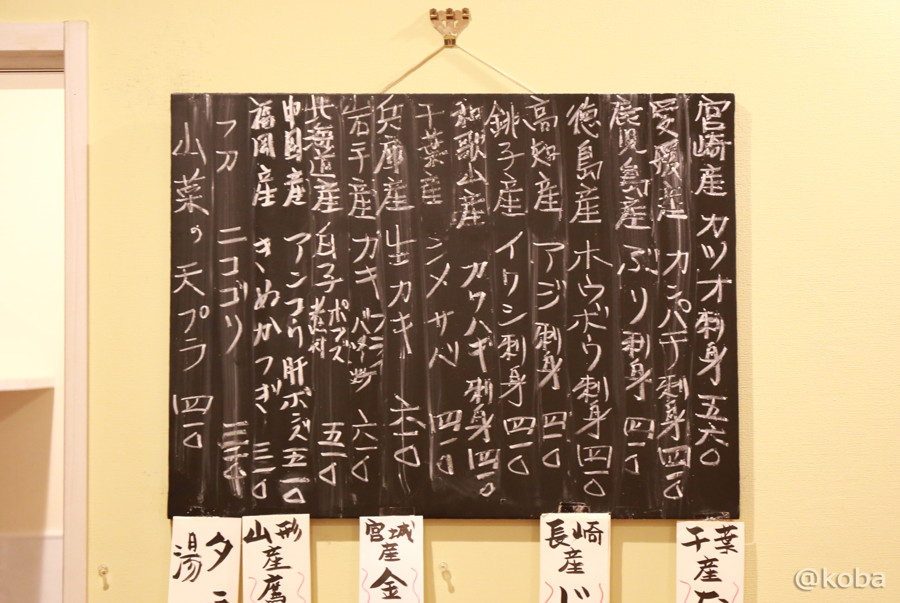 宮崎産 カツオ刺身 五六〇
愛媛産 カンパチ刺身 四一〇
鹿児島産 ぶり刺身 四一〇
徳島産 ホウボウ刺身 四一〇
高知産 アジ刺身 四一〇
銚子産 イワシ刺身 四一〇
和歌山産 カワハギ刺身 四一〇
千葉産 シメサバ 四一〇
兵庫産 生カキ 六一〇
岩手産 カキ フライ バター炒 六一〇
北海道産 白子 ポンズ 煮付 五一〇
中国産 アンコウ肝ポンズ 五一〇
福岡産 きぬかつぎ 三一〇
フカ ニコゴリ
山菜の天プラ 四一〇
千葉産
長崎産
宮城産 金
山形産
湯
@koba